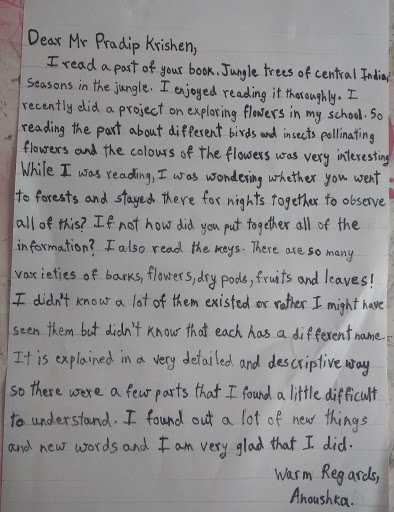 Dear Mr Pradip Krishen,
I read a part of your book, Jungle trees of central India,
Seasons in the jungle. I enjoyed reading it thoroughly. I
recently did a project on exploring flowers in my school. So
reading the part about different birds and insects pollinating
flowers and the colours of the flowers was very interesting
While I was reading, I was wondering whether you went
to forests and stayed there for nights together to observe
all of this? If not how did you put together all of the
information? I also read the keys. There are so many
varieties of barks, flowers, dry pods, fruits and leaves!
I didn't know a lot of them existed or rather I might have
seen them but didn't know that each has a different name.
It is explained in a very detailed and descriptive way
so there were a few parts that I found a little difficult
to understand. I found out a lot of new things
and new words and I am very glad that I did.
Warm Regards,
Anoushka.